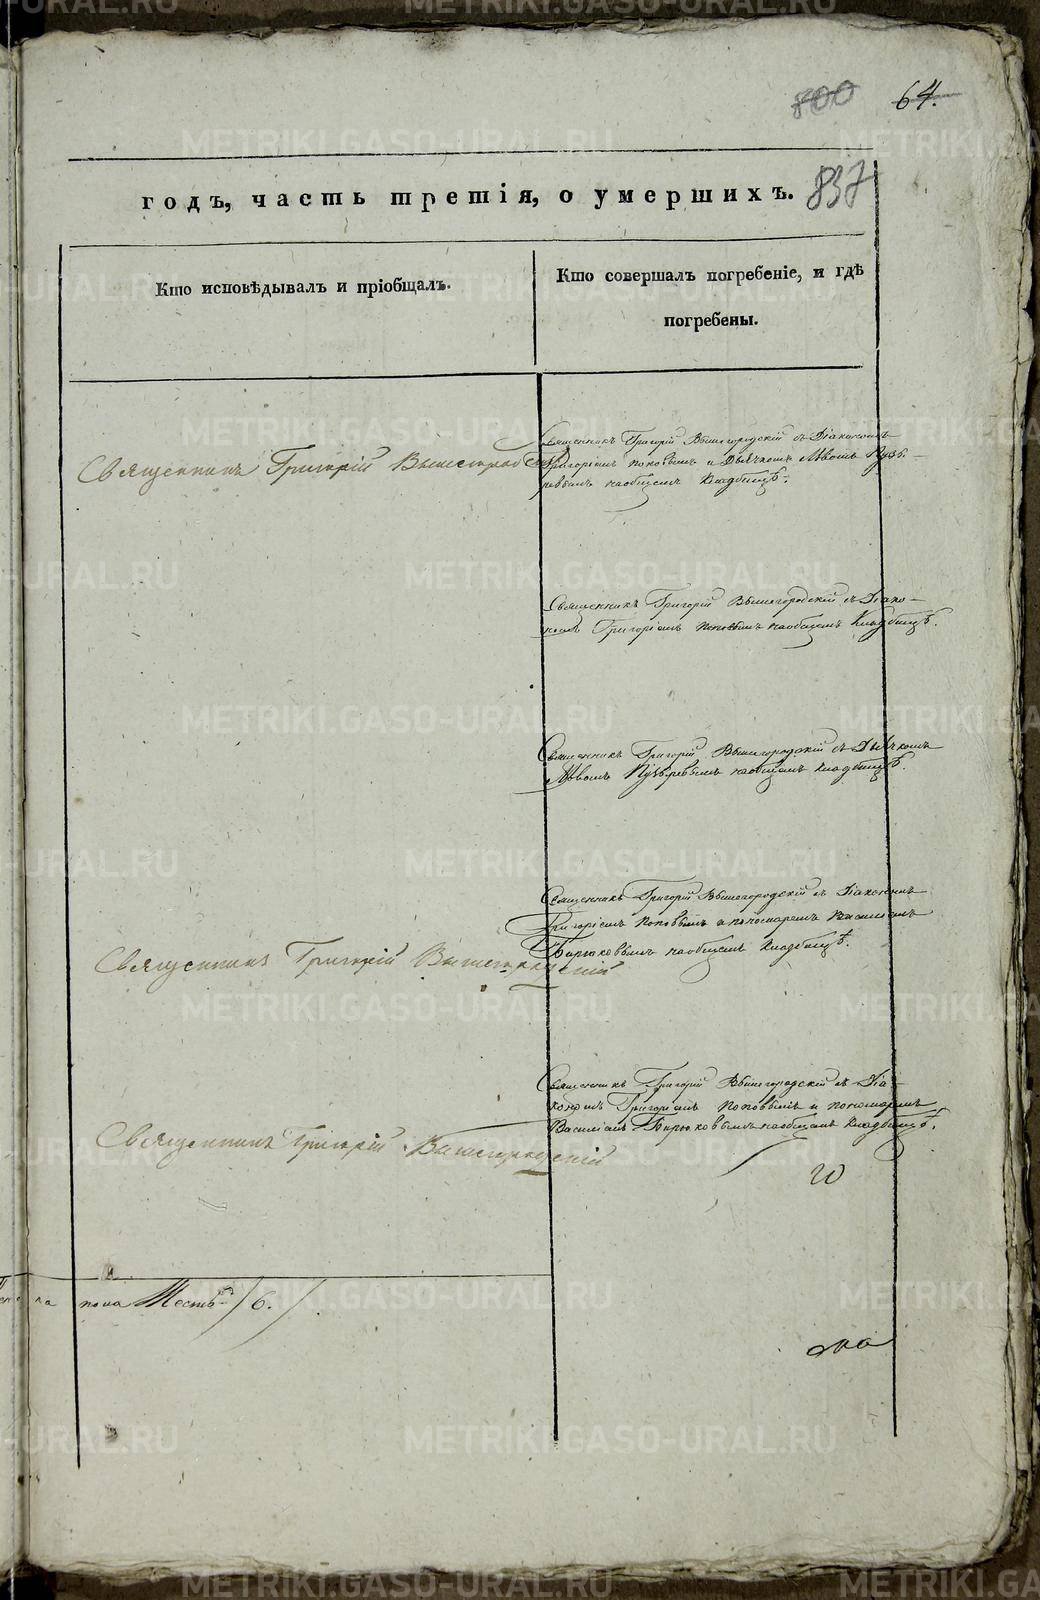 800 64.
годъ, часть третія, о умершихъ. 837
Кто исповѣдывалъ и пріобщалъ.
Кто совершалъ погребеніе, и гдѣ
погребены.
Священникъ Григорій Вышегородскій
Священникъ Григорій Вышегородскій съ Діакономъ
Григоріемъ Поповымъ и Дьячкомъ Львомъ Пузы-
ревымъ наобщемъ Кладбищѣ.
Священникъ Григорій Вышегородскій съ Діако-
номъ Григоріемъ Поповымъ наобщемъ Кладбищѣ.
Священникъ Григорій Вышегородскій съ Дьячкомъ
Львомъ Пузыревымъ наобщемъ кладбищѣ.
Священникъ Григорій Вышегородскій
Священникъ Григорій Вышегородскій съ Діакономъ
Григоріемъ Поповымъ и пономаремъ Василіемъ
Бирюковымъ наобщемъ кладбищѣ.
Священникъ Григорій Вышегородскій
Священникъ Григорій Вышегородскій съ Діа-
кономъ Григоріемъ Поповымъ и пономаремъ
Василіемъ Бирюковымъ наобщемъ Кладбищѣ.
пола Шесть /6./
METRIKI.GASO-URAL.RU